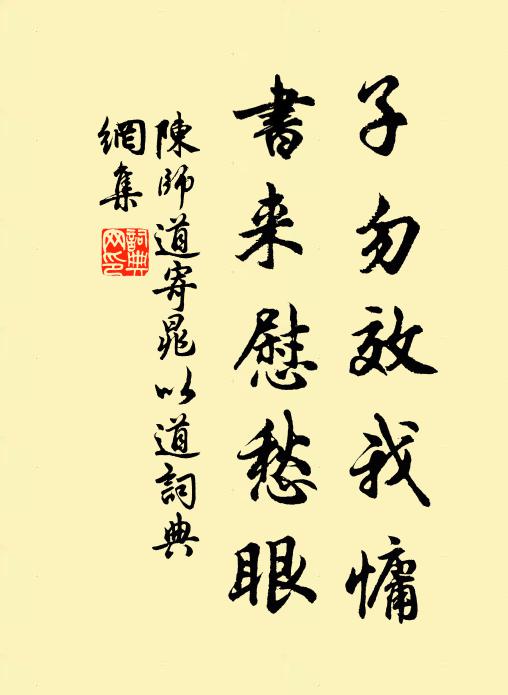 子勿效我慵
書来慰愁眼
陳師道寄晁以道詞典
網集
詞典
网印